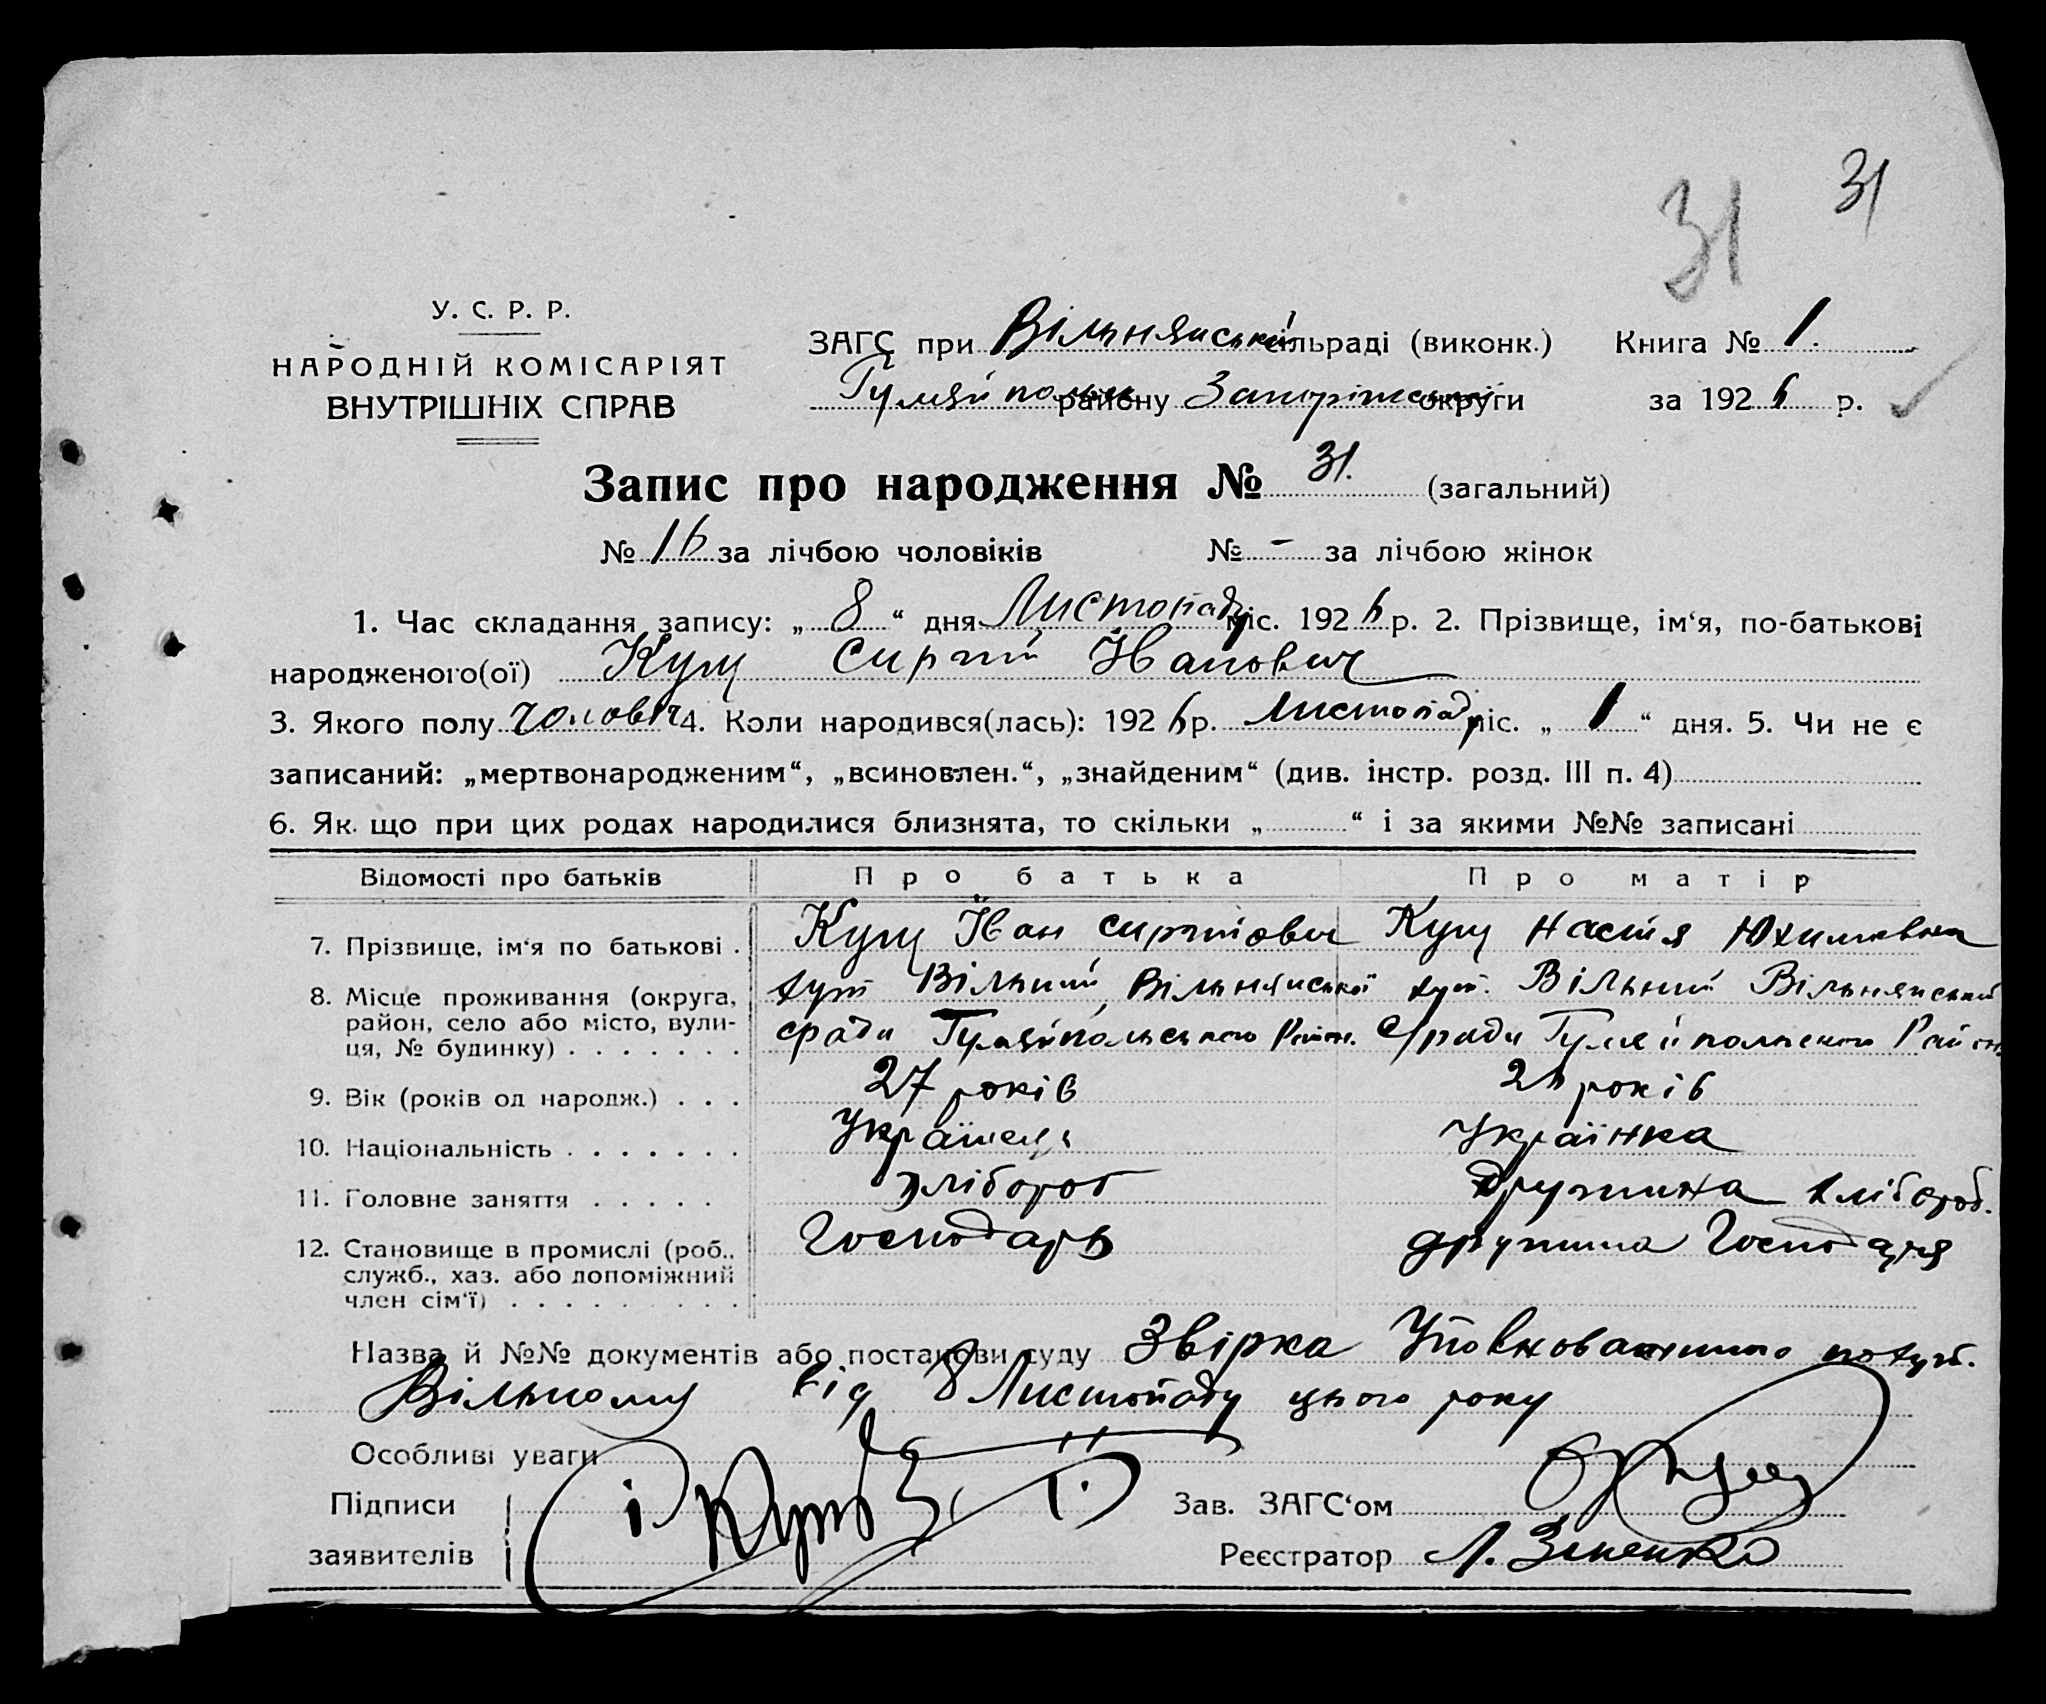 31
31
У. С. Р. Р.
НАРОДНІЙ КОМІСАРІЯТ
ВНУТРІШНІХ СПРАВ
ЗАГС при Вільнянській сільраді (виконк.) Книга № 1.
району округи за 1926 р.
Запис про народження № 31. (загальний)
№ 16 за лічбою чоловіків № - за лічбою жінок
1. Час складання запису: „ 8 “ дня Листопаду міс. 1926 р. 2. Прізвище, ім‘я, по-батькові
народженого(ої) Іванович
3. Якого полу чоловіч 4. Коли народився(лась): 1926 р. Листопаду міс. „ 1 “ дня. 5. Чи не є
записаний: „мертвонародженим“, „всиновлен.“, „знайденим“ (див. інстр. розд. III п. 4)
6. Як що при цих родах народилися близнята, то скільки „ “ і за якими №№ записані
Відомості про батьків Про батька Про матір
7. Прізвище, ім‘я по батькові . Іван Настя Юхимівна
8. Місце проживання (округа, хут Вільний Вільнянської хут. Вільний Вільнянської
район, село або місто, вули- с/ради Район. с/ради Район.
ця, № будинку) . . . . . . .
9. Вік (років од народж.) . . . 27 років 26 років
10. Національність . . . . . . . Українець Українка
11. Головне заняття . . . . . хлібороб дружина хлібороб.
12. Становище в промислі (роб., Господарь дружина Господаря
служб., хаз. або допоміжний
член сім‘ї) . . . . . . . . .
Назва й №№ документів або постанови суду Звірка Уповноваженого по хут.
Вільному від 8 Листопаду цього року
Особливі уваги
Підписи Зав. ЗАГС‘ом
заявителів Реєстратор Л. Зіненко